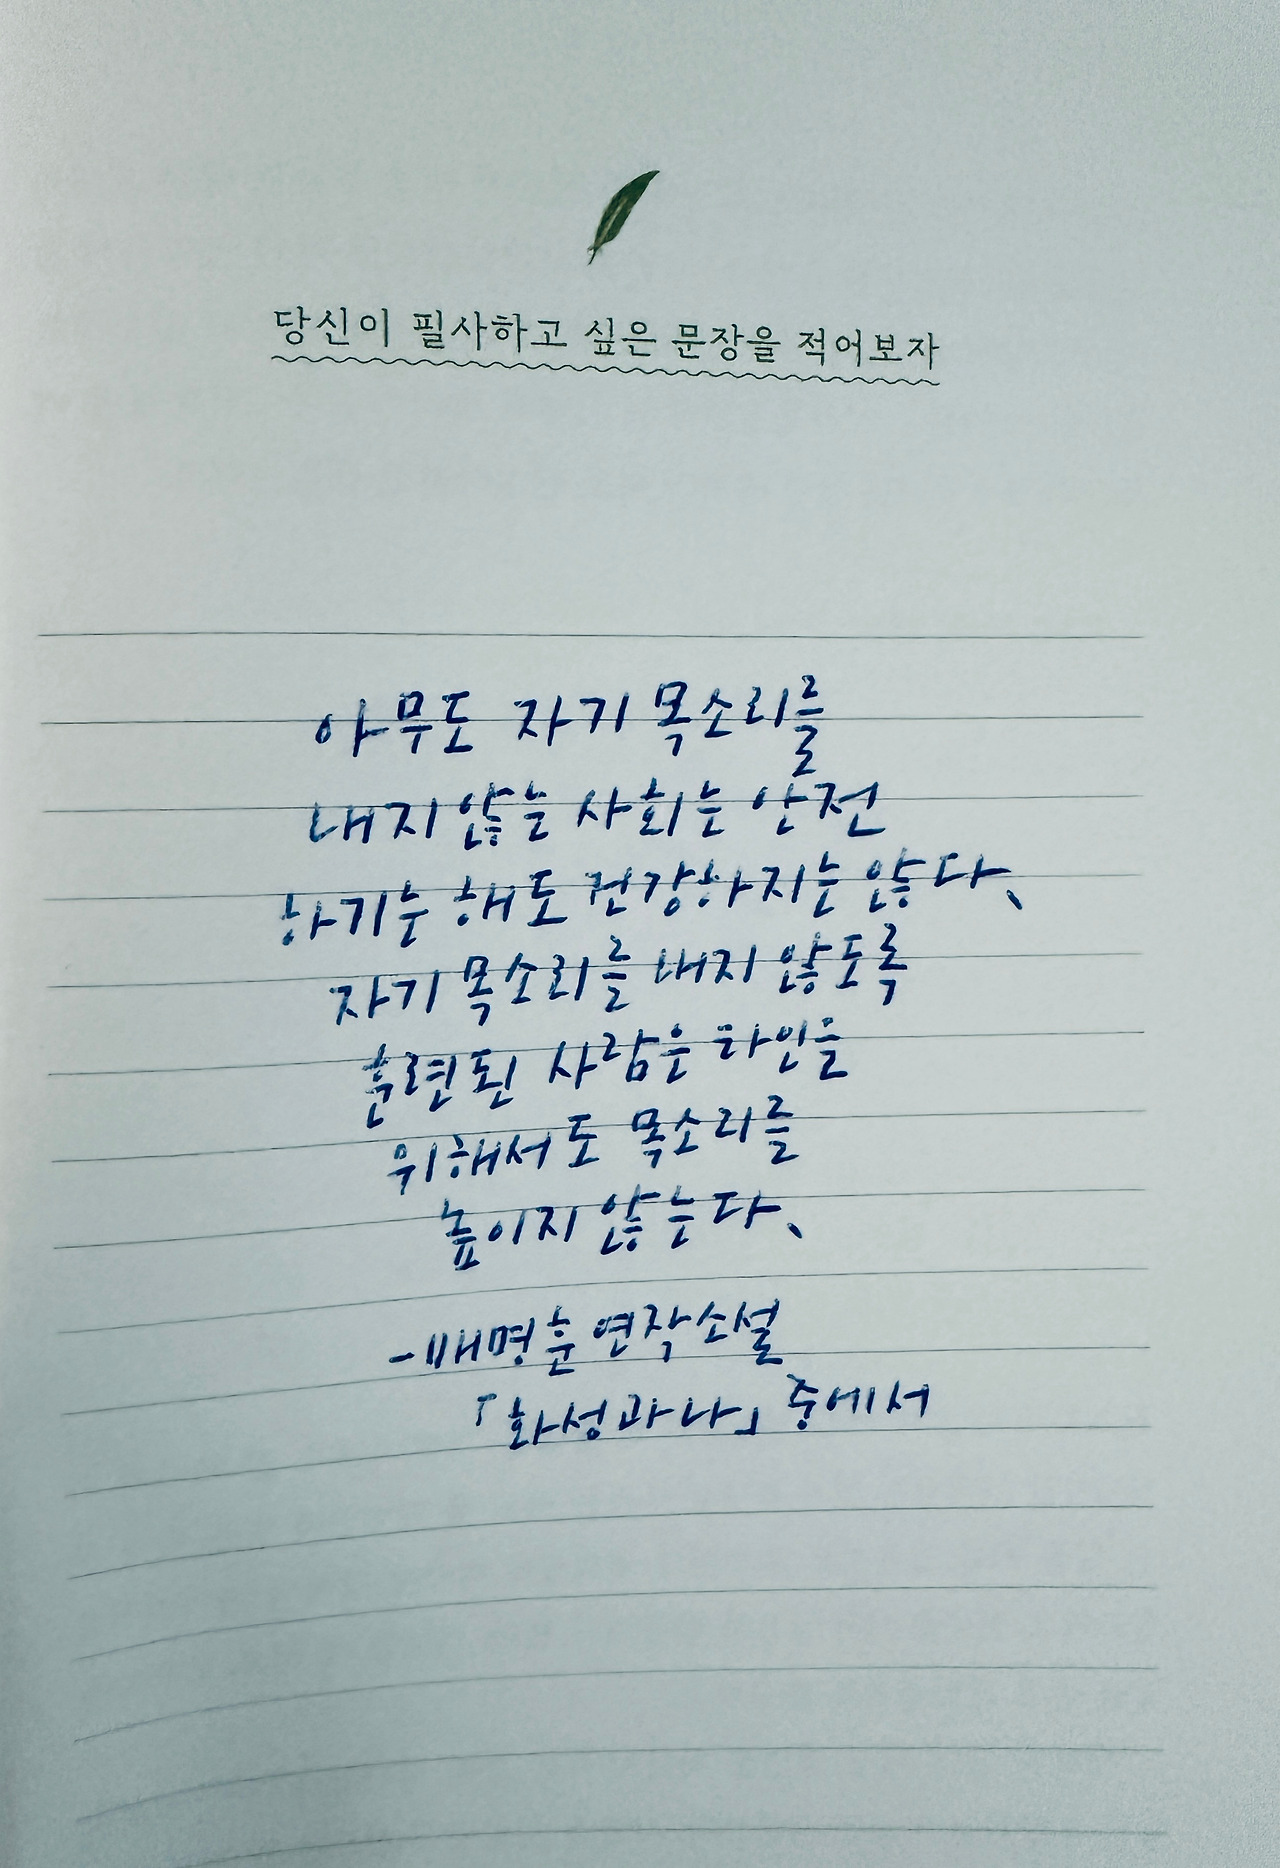 당신이 필사하고 싶은 문장을 적어보자
아무도 자기 목소리를
내지 않는 사회는 안전
하기는 해도 건강하지는 않다.
자기 목소리를 내지 않도록
훈련된 사람은 타인을
위해서도 목소리를
높이지 않는다.
-배명훈 연작소설
「화성과 나」 중에서